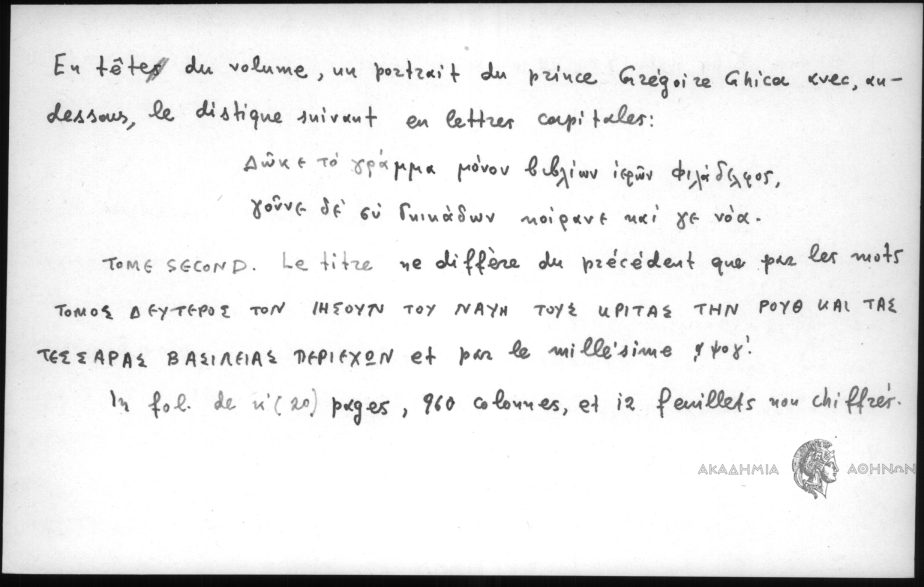 En tête du volume, un portrait du prince Grégoire Ghica avec, au-
dessous, le distique suivant en lettres capitales:
Δῶκε τό γράμμα μόνον βιβλίων ἱερῶν Φιλάδελφος,
γοῦνε δέ σύ Γκικάδων κοίρανε καί γε νόα.
TOME SECOND. Le titre ne diffère du précédent que par les mots
ΤΟΜΟΣ ΔΕΥΤΕΡΟΣ ΤΟΝ ΙΗΣΟΥΝ ΤΟΥ ΝΑΥΗ ΤΟΥΣ ΚΡΙΤΑΣ ΤΗΝ ΡΟΥΘ ΚΑΙ ΤΑΣ
ΤΕΣΣΑΡΑΣ ΒΑΣΙΛΕΙΑΣ ΠΕΡΙΕΧΩΝ et par le millésime ͵αψογ'.
In fol. de κ'(20) pages, 960 colonnes, et 12 feuillets non chiffrés.
ΑΚΑΔΗΜΙΑ ΑΘΗΝΩΝ